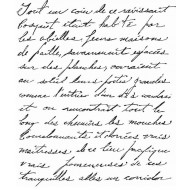 Tout au coin de ce ravissant
bosquet était habité par
les abeilles, leurs maisons
de paille, savamment espacées
sur des planches, ouvraient
au soleil leurs portes grandes
comme l'ouverture d'un dé à coudre
et on rencontrait tout le
long des chemins les mouches
bourdonnantes et dorées, vraies
maîtresses de ce lieu pacifique
vraies promeneuses de ces
tranquilles allées en corridor